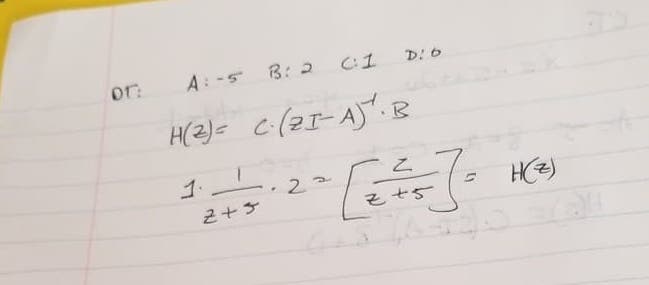 DT: A: -5 B: 2 C: 1 D: 0
H(z) = C·(zI-A)⁻¹·B
1· 1/(z+5) ·2 = [2/(z+5)] = H(z)